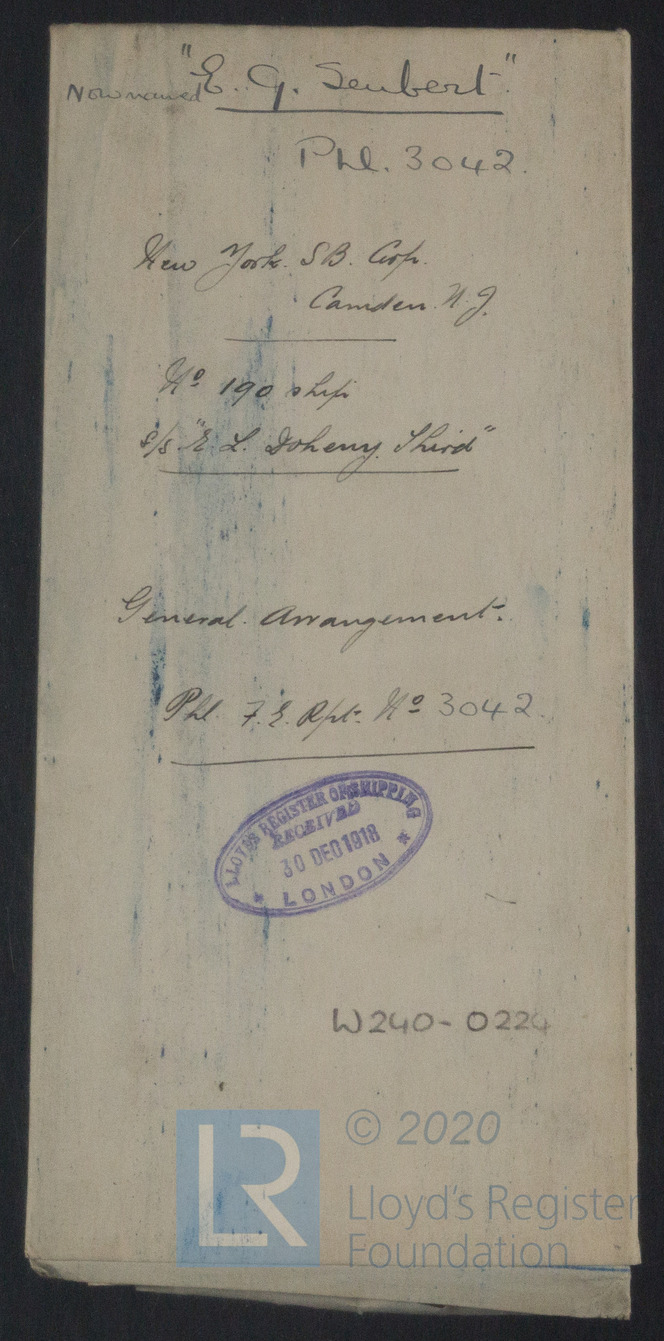 Now named "E. G. Seubert"
Phl. 3042.
New York. S.B. Corp.
Camden. N.J.
Nº 190 ship
s/s "E. L. Doheny Third"
General. Arrangement.
Phl. F.E. Rpt. Nº 3042.
LLOYD'S REGISTER OF SHIPPING
RECEIVED
30 DEC 1918
* LONDON *
W240-0224
LR
© 2020
Lloyd's Register
Foundation